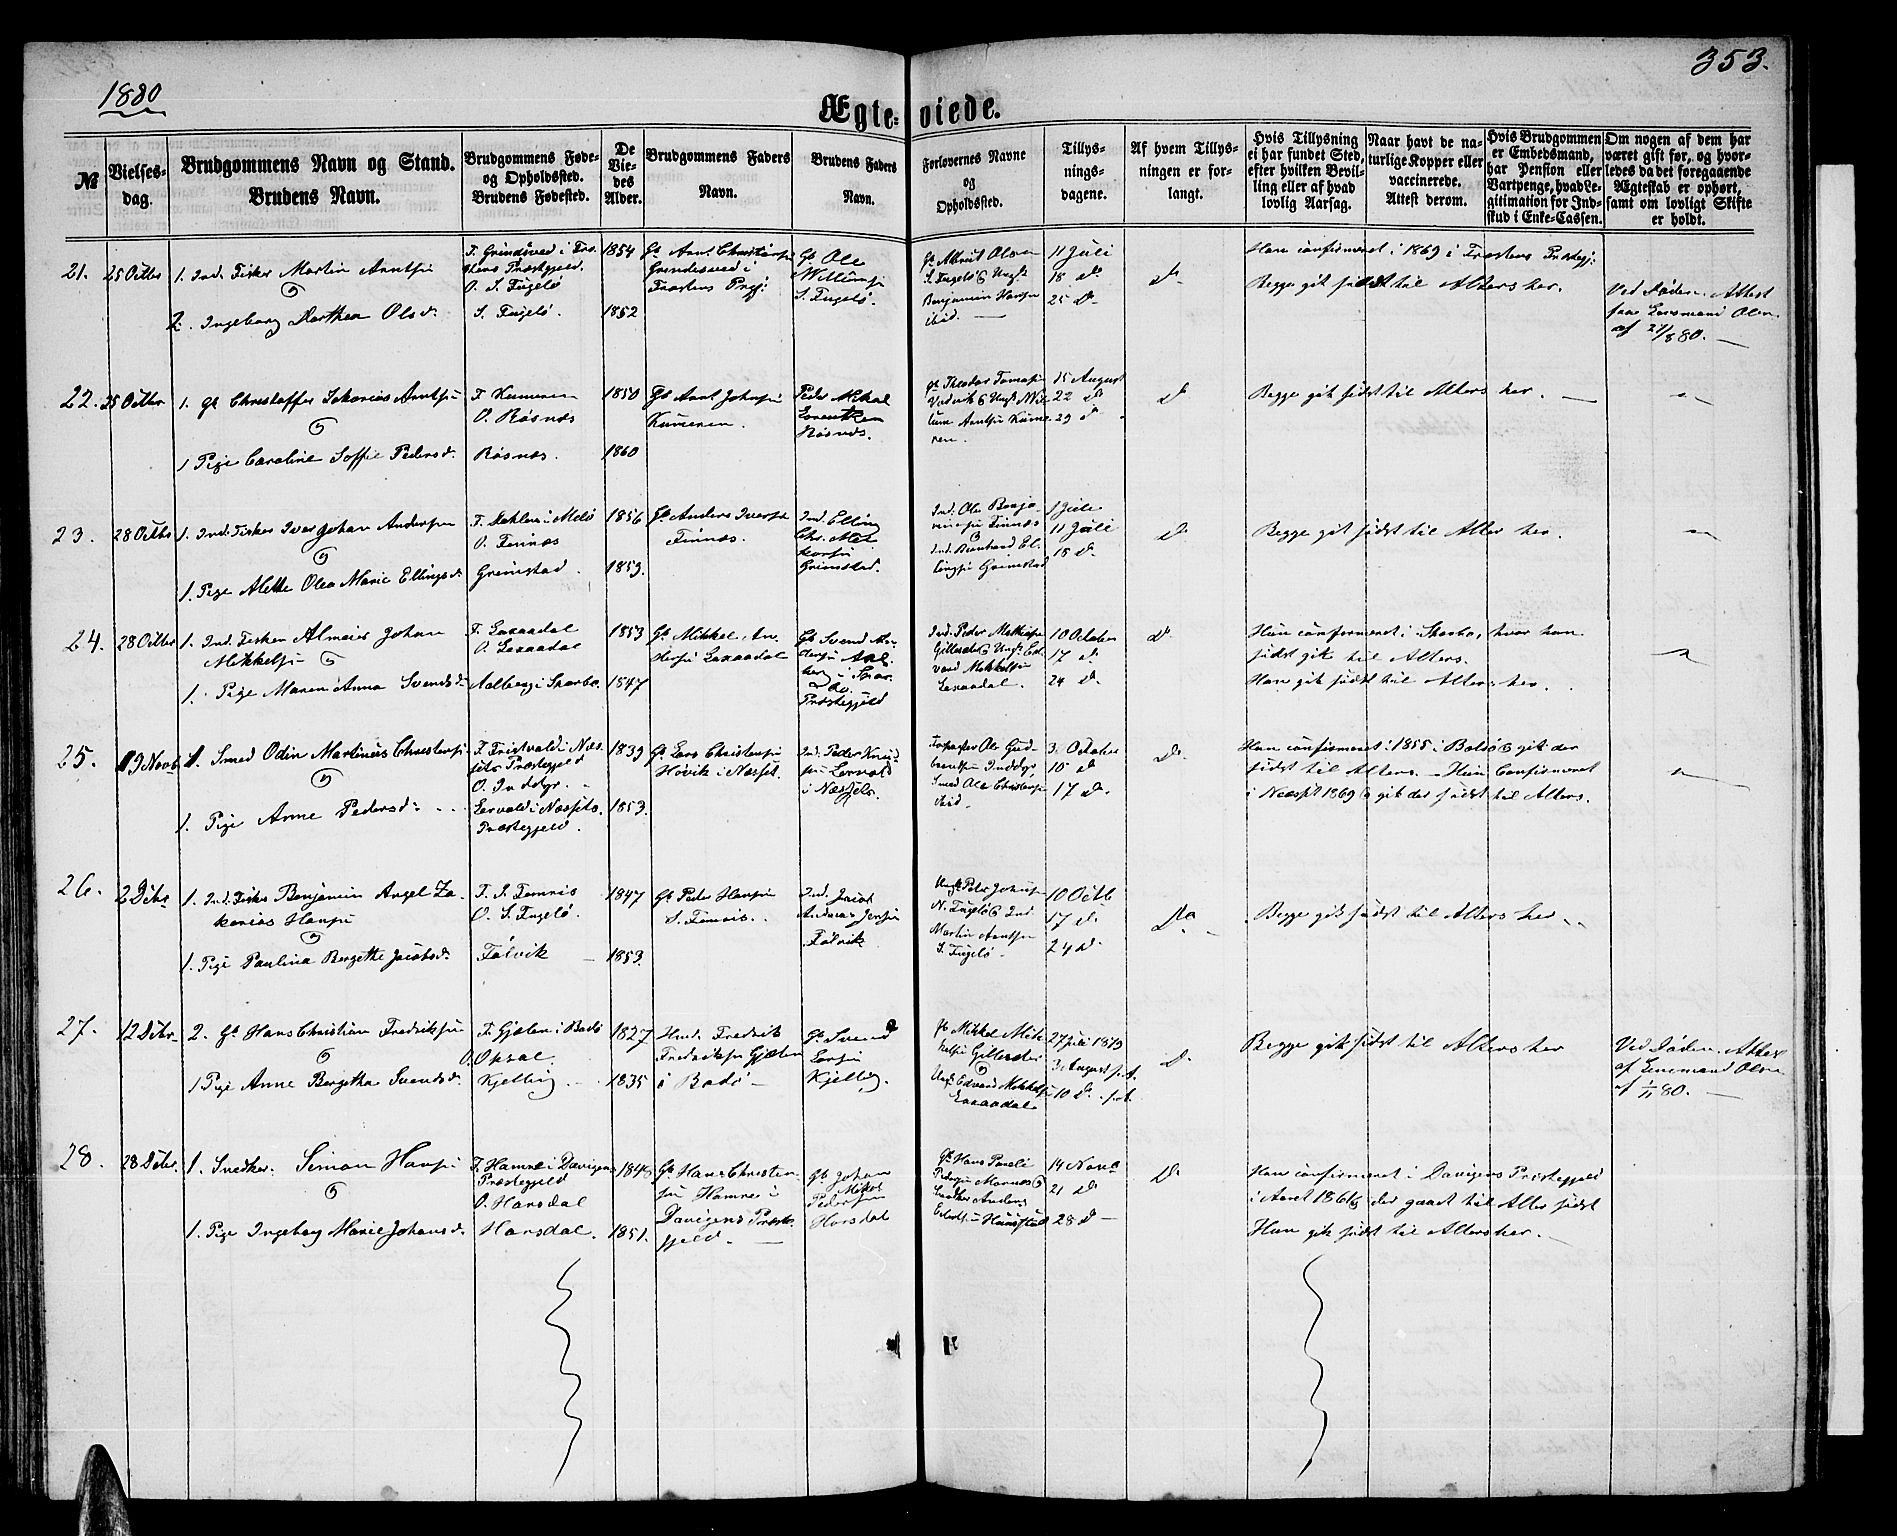 1880
353.
Ægte- viede.
No
Vielses-
dag.
Brudgommens Navn og Stand.
Brudens Navn.
Brudgommens Føde-
og Opholdssted.
Brudens Fødested.
De
Vie-
des
Alder.
Brudgommens Faders
Navn.
Brudens Faders
Navn.
Forlovernes Navne
og
Opholdssted.
Tillys-
nings-
dagene.
Af hvem Tillys-
ningen er for-
langt.
Hvis Tillysning
ei har fundet Sted,
efter hvilken Bevil-
ling eller af hvad
lovlig Aarsag.
Naar havt de na-
turlige Kopper eller
vaccinerede.
Attest derom.
Hvis Brudgommen
er Embedsmand,
har Pension eller
Vartpenge, hvad Le-
gitimation for Ind-
skud i Enke-Cassen.
Om nogen af dem har
været gift før, og hvor-
ledes da det foregaaende
Ægteskab er ophørt,
samt om lovligt Skifte
er holdt.
21. 25 Octbr 1. Ind. Fisker Martin Arntsen
2. Ingeborg Dorthea Olsd.
F. Grindsved i
O. S. Fugelø
S. Fugelø.
1854
1852
Gb. Arnt Christensen
Grindesved i
Gb Ole
Willumsen
S. Fugelø.
S. Fugelø & Ungk
Benjamin Hansen
ibid.
11 Juli
18 d.
25 D.
D.
Han confirmeret i 1869 i
Begge gik sidst til Alters her.
Ved Døden. Attest
fra Lensmand Olsen
af 21/8 80.
22. 25 Octbr 1. Gb Christoffer Sakarias Arntsen
1 Pige Caroline Soffie Pedersd.
F. Kunneren
O. Røsnes
Røsnæs.
1850
1860
Gb Arnt Johnsen
Peder Mikal
Lorentzen
Røsnes.
Gb Theodor Tomasen
15 August
22 d
29 d
D
Begge gik sidst til Alters her.
23. 28 Octbr 1. Ind. Fisker Iver Johan Andersen
1. Pige Alette Olea Marie Ellingsd.
F. Dahlen i Melø
O. Finnæs
Grimstad.
1856
1853.
Gb. Anders Iversen
Finnæs.
Ind. Elling
Chr.
Grimstad.
Ind. Ole Benja-
minsen Finnæs
&
Ind. Bernhard El-
lingsen Grimstad
1 Juli
11 Juli
18 d.
D.
Begge gik sidst til Alter her.
24. 28 Octbr 1. Ind. Fisker Almeier Johan
Mikkelsen
1. Pige Maren Anna Svendsd.
F. Laxaadal
O. Laxaadal
Aalberg i Skorbo.
1853
1847
Gb. Mikkel An-
dersen Laxaadal
Gb Svend An-
dersen Aal-
berg i
Præstegjeld
Ind. Peder
Gillesdal & Ungk. Ed-
vard Mikkelsen
Laxaadal.
10 October
17 d.
24 d.
D.
Hun confirmeret i Skorbo, hvor hun
sidst gik til Alters.
Han gik sidst til Alters her.
25. 19 Novb 1. Smed Odin Martinius Christensen
1. Pige Anne Pedersd.
i Næs-
sets Præstegjeld
O. Inddyr.
i Næssets
Præstegjeld.
1839
1853.
Gb. Lars Christensen
Høvik i Næsset.
Ind. Peder Knud-
sen
i Næssets.
Ole Gud-
brandsen Inddyr,
Smed Ole Christensen
ibid.
3. October
10 d
17 D.
D.
Han confirmeret i 1855 i Bolsø & gik der
sidst til Alters. Hun Confirmeret
i Næsset 1869 & gik der sidst til Alters.
26. 2 Dcbr 1. Ind. Fisker Benjamin Angel Za-
karias Hansen
1. Pige Paulina Bergette Jacobsd.
O. S. Fugelø.
Følvik
1847
1853.
Gb Peder Hansen
Ind. Jacob
Andreas Jensen
Følvik
Ungk. Peter Johnsen
N. Fugelø & Ind
Martin Arntsen
S. Fugelø.
10 Octb
17 d.
24 d.
Do
Begge gik sidst til Alters her.
27. 12 Dcbr 2. Gb Hans Christian Fredriksen
1 Pige Anne Bergetha Svendsd.
F. Gjelen i Bodø
O. Oksal.
Kjelling.
1827
1835
Fredrik
Fredriksen Gjelen
i Bodø
Gb Svend
Larsen
Kjelling.
Gb Mikkel Mik-
kelsen Gillesdal
&
Ungk Edvard Mikkelsen
Laxaadal
27 Juli 1879
3. August s.A.
10 D. s.A.
D.
Begge gik sidst til Alters her
Ved Døden. Attest
af Lensmand Olsen
af 1/11 80.
28. 28 Dcbr. 1. Snedker. Simon Hansen
1. Pige Ingeborg Marie Johansd.
F. Hamnei Davigens
Præstegjeld
O. Horsdal
Horsdal.
1848
1851.
Gb Hans Christen-
sen Hamnei
Davigens Præste-
gjeld.
Gb Johan
Mikal
Pedersen
Horsdal
Gb Hans
Pedersen Mornes &
Snedker Anders
14 Novb
21 D.
28 D
D.
Han confirmeret i Davigens Præstegjeld
i Aaret 1866 & der gaaet til Alter sidst
Hun gik sidst til Alters her.